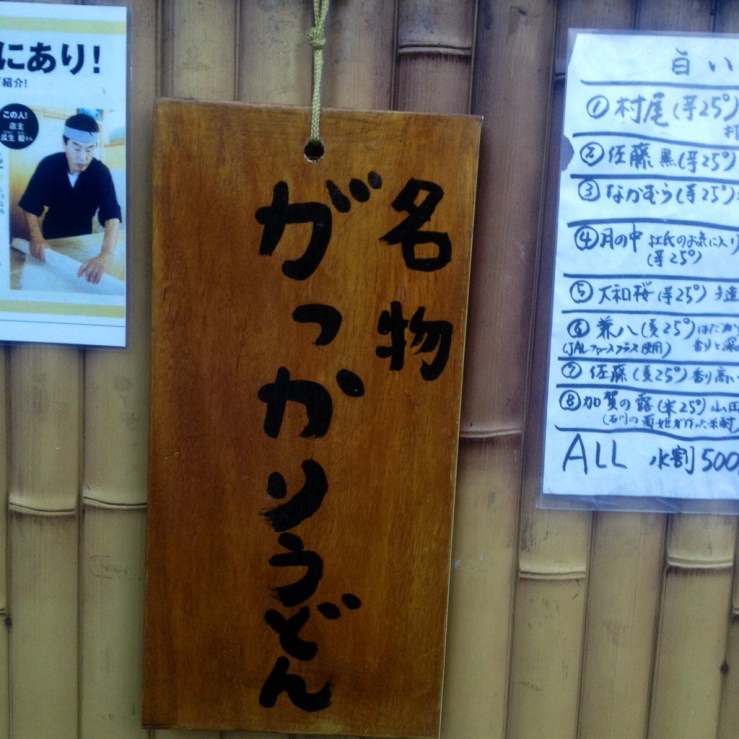 にあり!
紹介!
この人!
店主
名物
がっかりうどん
旨い
①村尾(芋25°)
②佐藤 黒(芋25°)
③なかむら(芋25°)
④月の中 杜氏のお気に入り
(芋25°)
⑤大和桜(芋25°)
⑥兼八(麦25°)はだか
(JALファーストクラス使用)
⑦佐藤(麦25°)香り高い
⑧加賀の露(米25°)山田
ALL 水割500